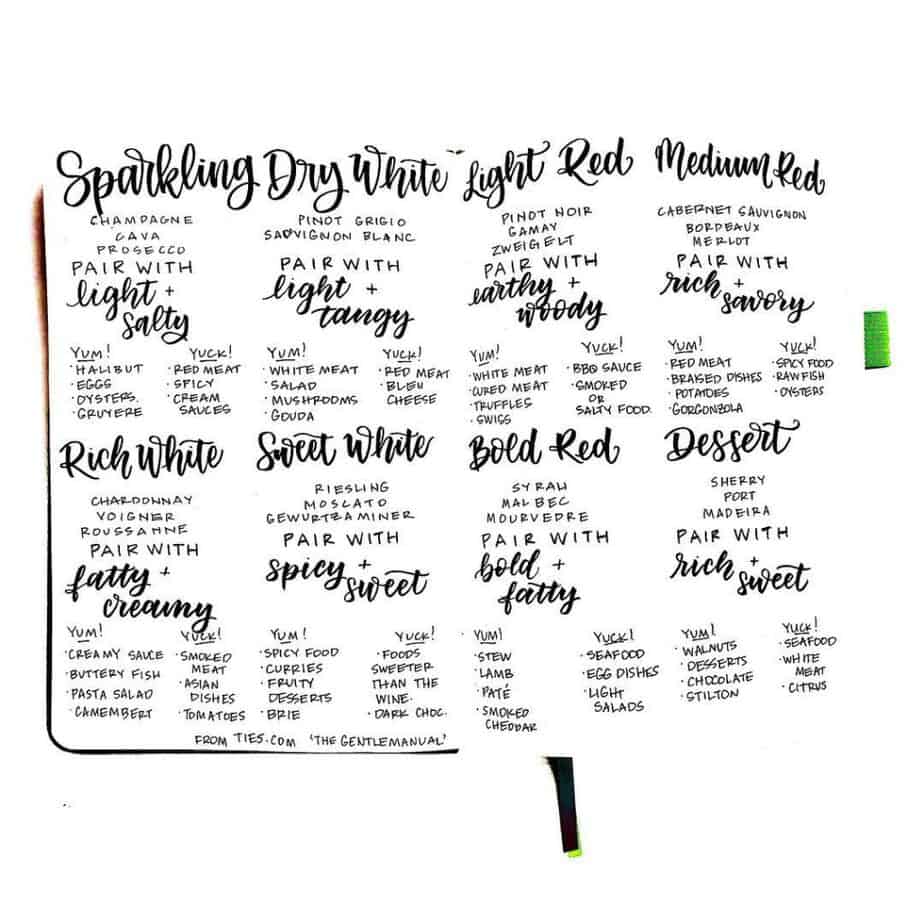 Sparkling
CHAMPAGNE
CAVA
PROSECCO
PAIR WITH
light +
salty
YUM!
· HALIBUT
· EGGS
· OYSTERS.
· GRUYERE
YUCK!
· RED MEAT
· SPICY
· CREAM
SAUCES
Dry White
PINOT GRIGIO
SAUVIGNON BLANC
PAIR WITH
light +
tangy
YUM!
· WHITE MEAT
· SALAD
· MUSHROOMS
· GOUDA
YUCK!
· RED MEAT
· BLEU
CHEESE
Light Red
PINOT NOIR
GAMAY
ZWEIGELT
PAIR WITH
earthy +
woody
YUM!
· WHITE MEAT
· CURED MEAT
· TRUFFLES
· SWISS
YUCK!
· BBQ SAUCE
· SMOKED
OR
SALTY FOOD.
Medium Red
CABERNET SAUVIGNON
BORDEAUX
MERLOT
PAIR WITH
rich +
savory
YUM!
· RED MEAT
· BRAISED DISHES
· POTATOES
· GORGONZOLA
YUCK!
· SPICY FOOD
· RAW FISH
· OYSTERS
Rich White
CHARDONNAY
VOIGNER
ROUSSANNE
PAIR WITH
fatty +
creamy
YUM!
· CREAMY SAUCE
· BUTTERY FISH
· PASTA SALAD
· CAMEMBERT
YUCK!
· SMOKED
MEAT
· ASIAN
DISHES
· TOMATOES
Sweet White
RIESLING
MOSCATO
GEWURTZAMINER
PAIR WITH
spicy +
sweet
YUM!
· SPICY FOOD
· CURRIES
· FRUITY
DESSERTS
· BRIE
YUCK!
· FOODS
SWEETER
THAN THE
WINE.
· DARK CHOC.
Bold Red
SYRAH
MALBEC
MOURVEDRE
PAIR WITH
bold +
fatty
YUM!
· STEW
· LAMB
· PATÉ
· SMOKED
CHEDDAR
YUCK!
· SEAFOOD
· EGG DISHES
· LIGHT
SALADS
Dessert
SHERRY
PORT
MADEIRA
PAIR WITH
rich +
sweet
YUM!
· WALNUTS
· DESSERTS
· CHOCOLATE
· STILTON
YUCK!
· SEAFOOD
· WHITE
MEAT
· CITRUS
FROM TIES.COM 'THE GENTLEMANUAL'